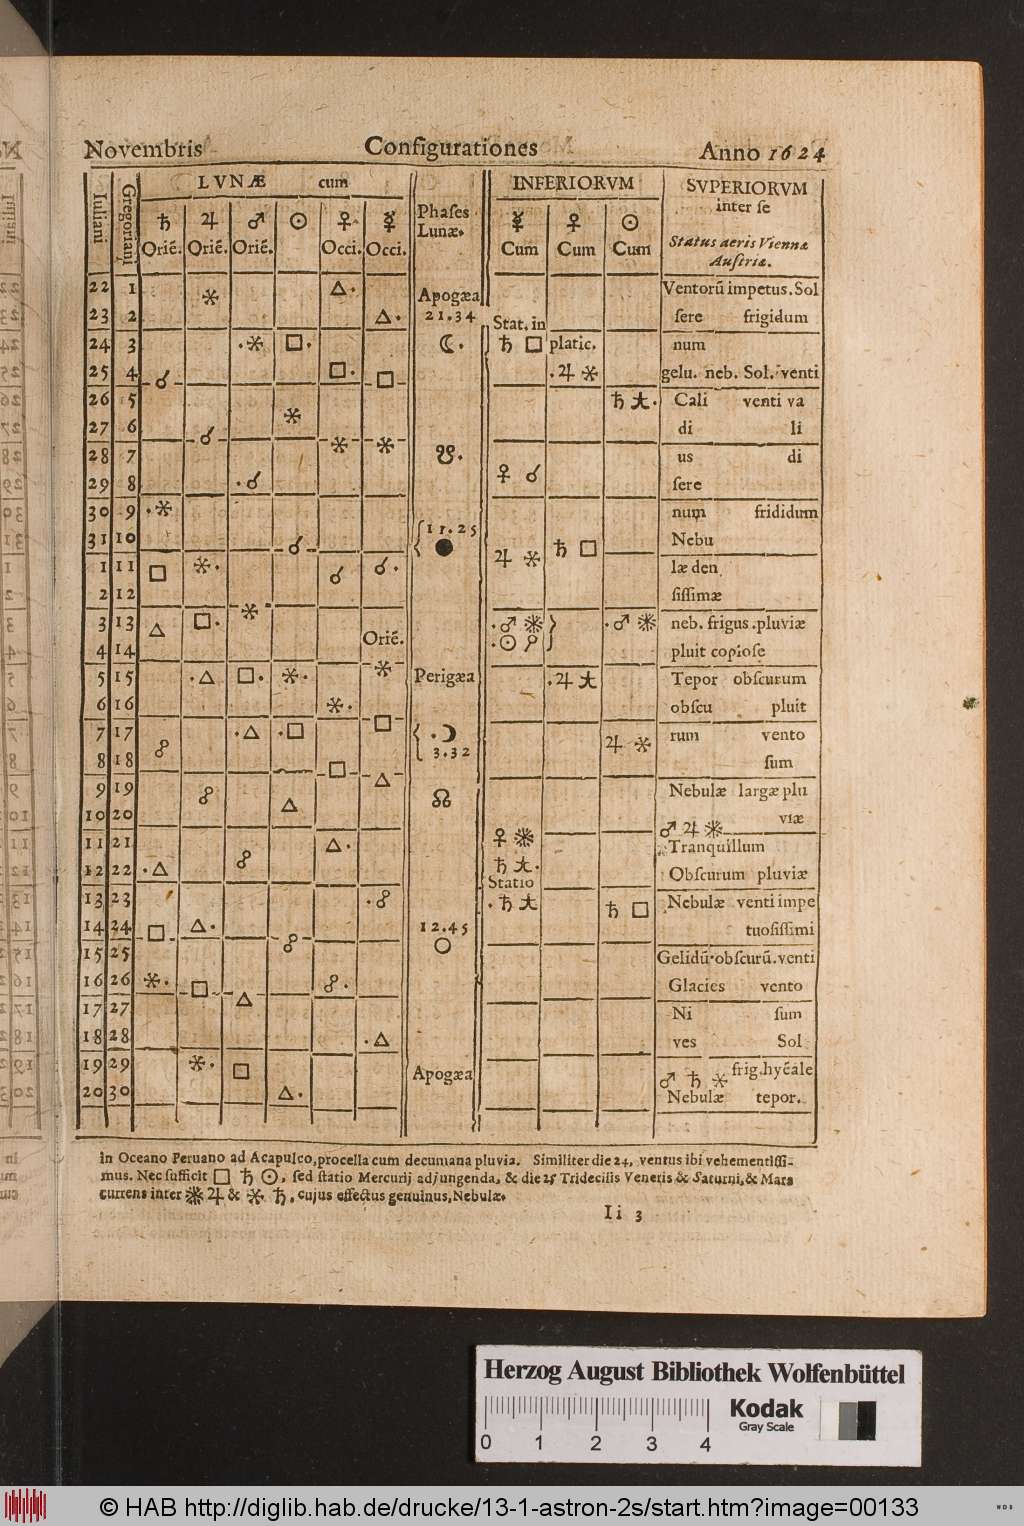 Novembris Configurationes Anno 1624
Iuliani Gregoriani LVNÆ cum Phases Lunæ. INFERIORVM SVPERIORVM
inter se
♄ ♃ ♂ ☉ ♀ ☿ ☿ ♀ ☉
Orié. Orié. Orié. Occi. Occi. Cum Cum Cum Status aeris Viennæ
Austriæ.
22 1 ⚹ △. Apogæa Ventorũ impetus. Sol
23 2 △. 21.34 Stat. in sere frigidum
24 3 .⚹ □. ☾. ♄ □ platic. num
25 4 ☌ □. □ .♃ ⚹ gelu. neb. Sol. venti
26 5 ⚹ Cali venti va
27 6 ☌ di li
28 7 ⚹ ⚹ ☋. us di
29 8 .☌ ♀ ☌ sere
30 9 .⚹ 11.25 num frididum
31 10 ☌ ● ♃ ⚹ ♄ □ Nebu
1 11 □ ⚹. ☌ ☌. læ den
2 12 sissimæ
3 13 △ □. ⚹ neb. frigus. pluviæ
4 14 Orié. pluit copiose
5 15 .△ □. ⚹. ⚹ Perigæa Tepor obscurum
6 16 ⚹. obscu pluit
7 17 ☍ .△ .□ □ .☽ rum vento
8 18 □ 3.32 ♃ ⚹ sum
9 19 ☍ △ △ ☊ Nebulæ largæ plu
10 20 viæ
♂ ♃
11 21 ☍ △. Tranquillum
12 22 .△ Statio Obscurum pluviæ
13 23 .☍ ♄ □ Nebulæ venti impe
14 24 □ △. 12.45 tuosissimi
15 25 ☍ ○ Gelidũ. obscurũ. venti
16 26 ⚹. □ △ ☍. Glacies vento
17 27 Ni sum
18 28 .△ ves Sol
19 29 ⚹. □ Apogæa ♂ ♄ ⚹ frig. hyẽale
20 30 △. Nebulæ tepor.
in Oceano Peruano ad Acapulco, procella cum decumana pluvia. Similiter die 24, ventus ibi vehementissi-
mus. Nec sufficit □ ♄ ☉, sed statio Mercurij adjungenda, & die 25 Tridecilis Veneris & Saturni, & Mars
currens inter ♃ & ⚹ ♄, cujus effectus genuinus, Nebulæ.
Ii 3
Herzog August Bibliothek Wolfenbüttel
0 1 2 3 4
Kodak
Gray Scale
© HAB http://diglib.hab.de/drucke/13-1-astron-2s/start.htm?image=00133